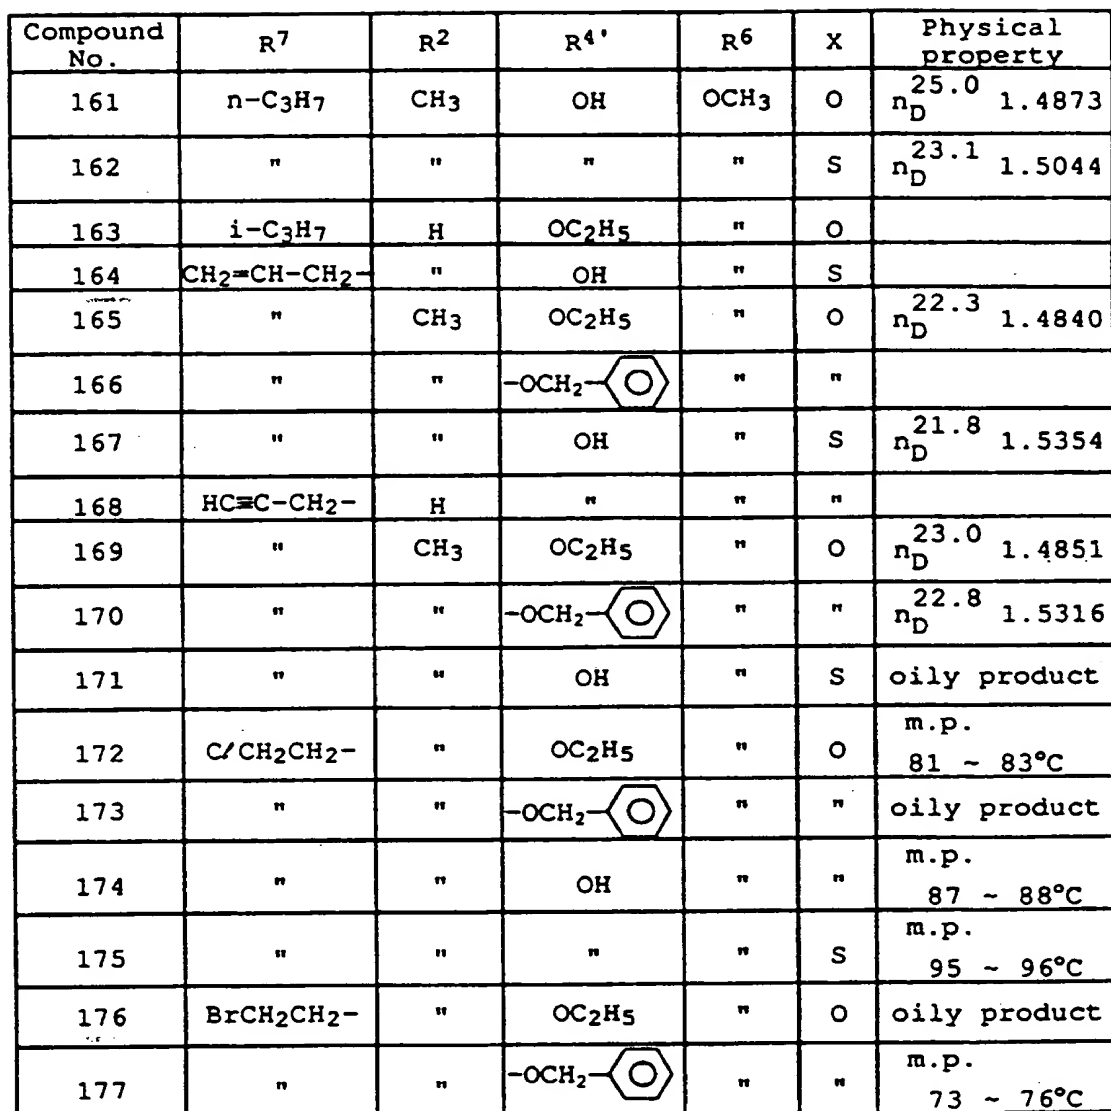 Compound No. R7 R2 R4' R6 X Physical property
161 n-C3H7 CH3 OH OCH3 O nD25.0 1.4873
162 " " " " S nD23.1 1.5044
163 i-C3H7 H OC2H5 " O
164 CH2=CH-CH2- " OH " S
165 " CH3 OC2H5 " O nD22.3 1.4840
166 " " -OCH2- " "
167 " " OH " S nD21.8 1.5354
168 HC≡C-CH2- H " " "
169 " CH3 OC2H5 " O nD23.0 1.4851
170 " " -OCH2- " " nD22.8 1.5316
171 " " OH " S oily product
172 ClCH2CH2- " OC2H5 " O m.p. 81 ~ 83°C
173 " " -OCH2- " " oily product
174 " " OH " " m.p. 87 ~ 88°C
175 " " " " S m.p. 95 ~ 96°C
176 BrCH2CH2- " OC2H5 " O oily product
177 " " -OCH2- " " m.p. 73 ~ 76°C